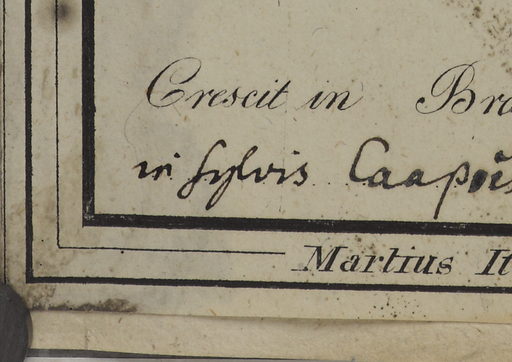 Crescit in Bra
in sylvis Caapoës
Martius It